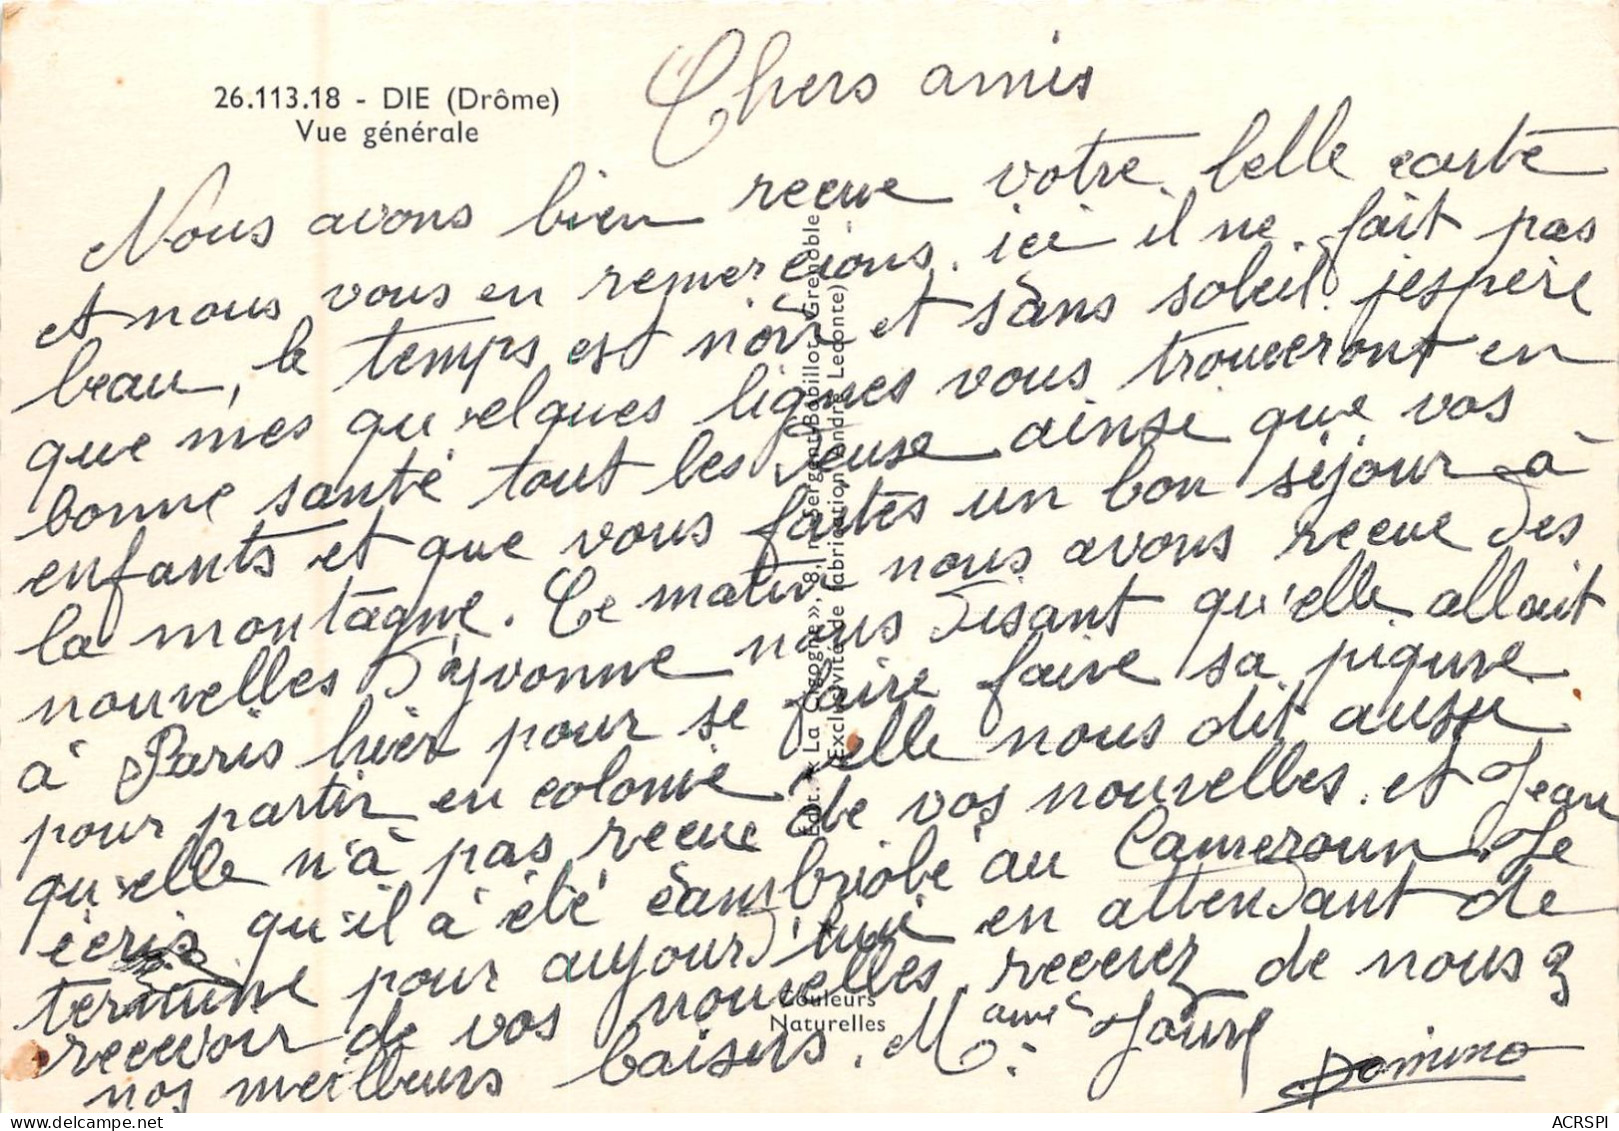 26.113.18 - DIE (Drôme)
Vue générale
Chers amis
Nous avons bien recue votre belle carte
et nous vous en remercions. ici il ne fait pas
beau, le temps est noir et sans soleil. jespère
que mes qu'elques lignes vous trouveront en
bonne santé tout les veuse ainse que vos
enfants et que vous faites un bon séjour à
la montagne. Ce matin nous avons recue des
nouvelles d'yvonne nous disant qu'elle allait
à Paris hier pour se faire faire sa piqure
pour partir en colonie elle nous dit aussu
qu'elle n'à pas recue de vos nouvelles. et Jean
écris qu'il à été cambriolé au Cameroun. Je
termine pour aujourd'hui en attendant de
recevoir de vos nouvelles recevez de nous 3
nos meilleurs baisers. Mame
Domino
Édit. « La Cigogne », 8, r. Sergent-Bobillot, Grenoble
(Exclusivité de fabrication André Leconte)
Couleurs
Naturelles
ACRSPI